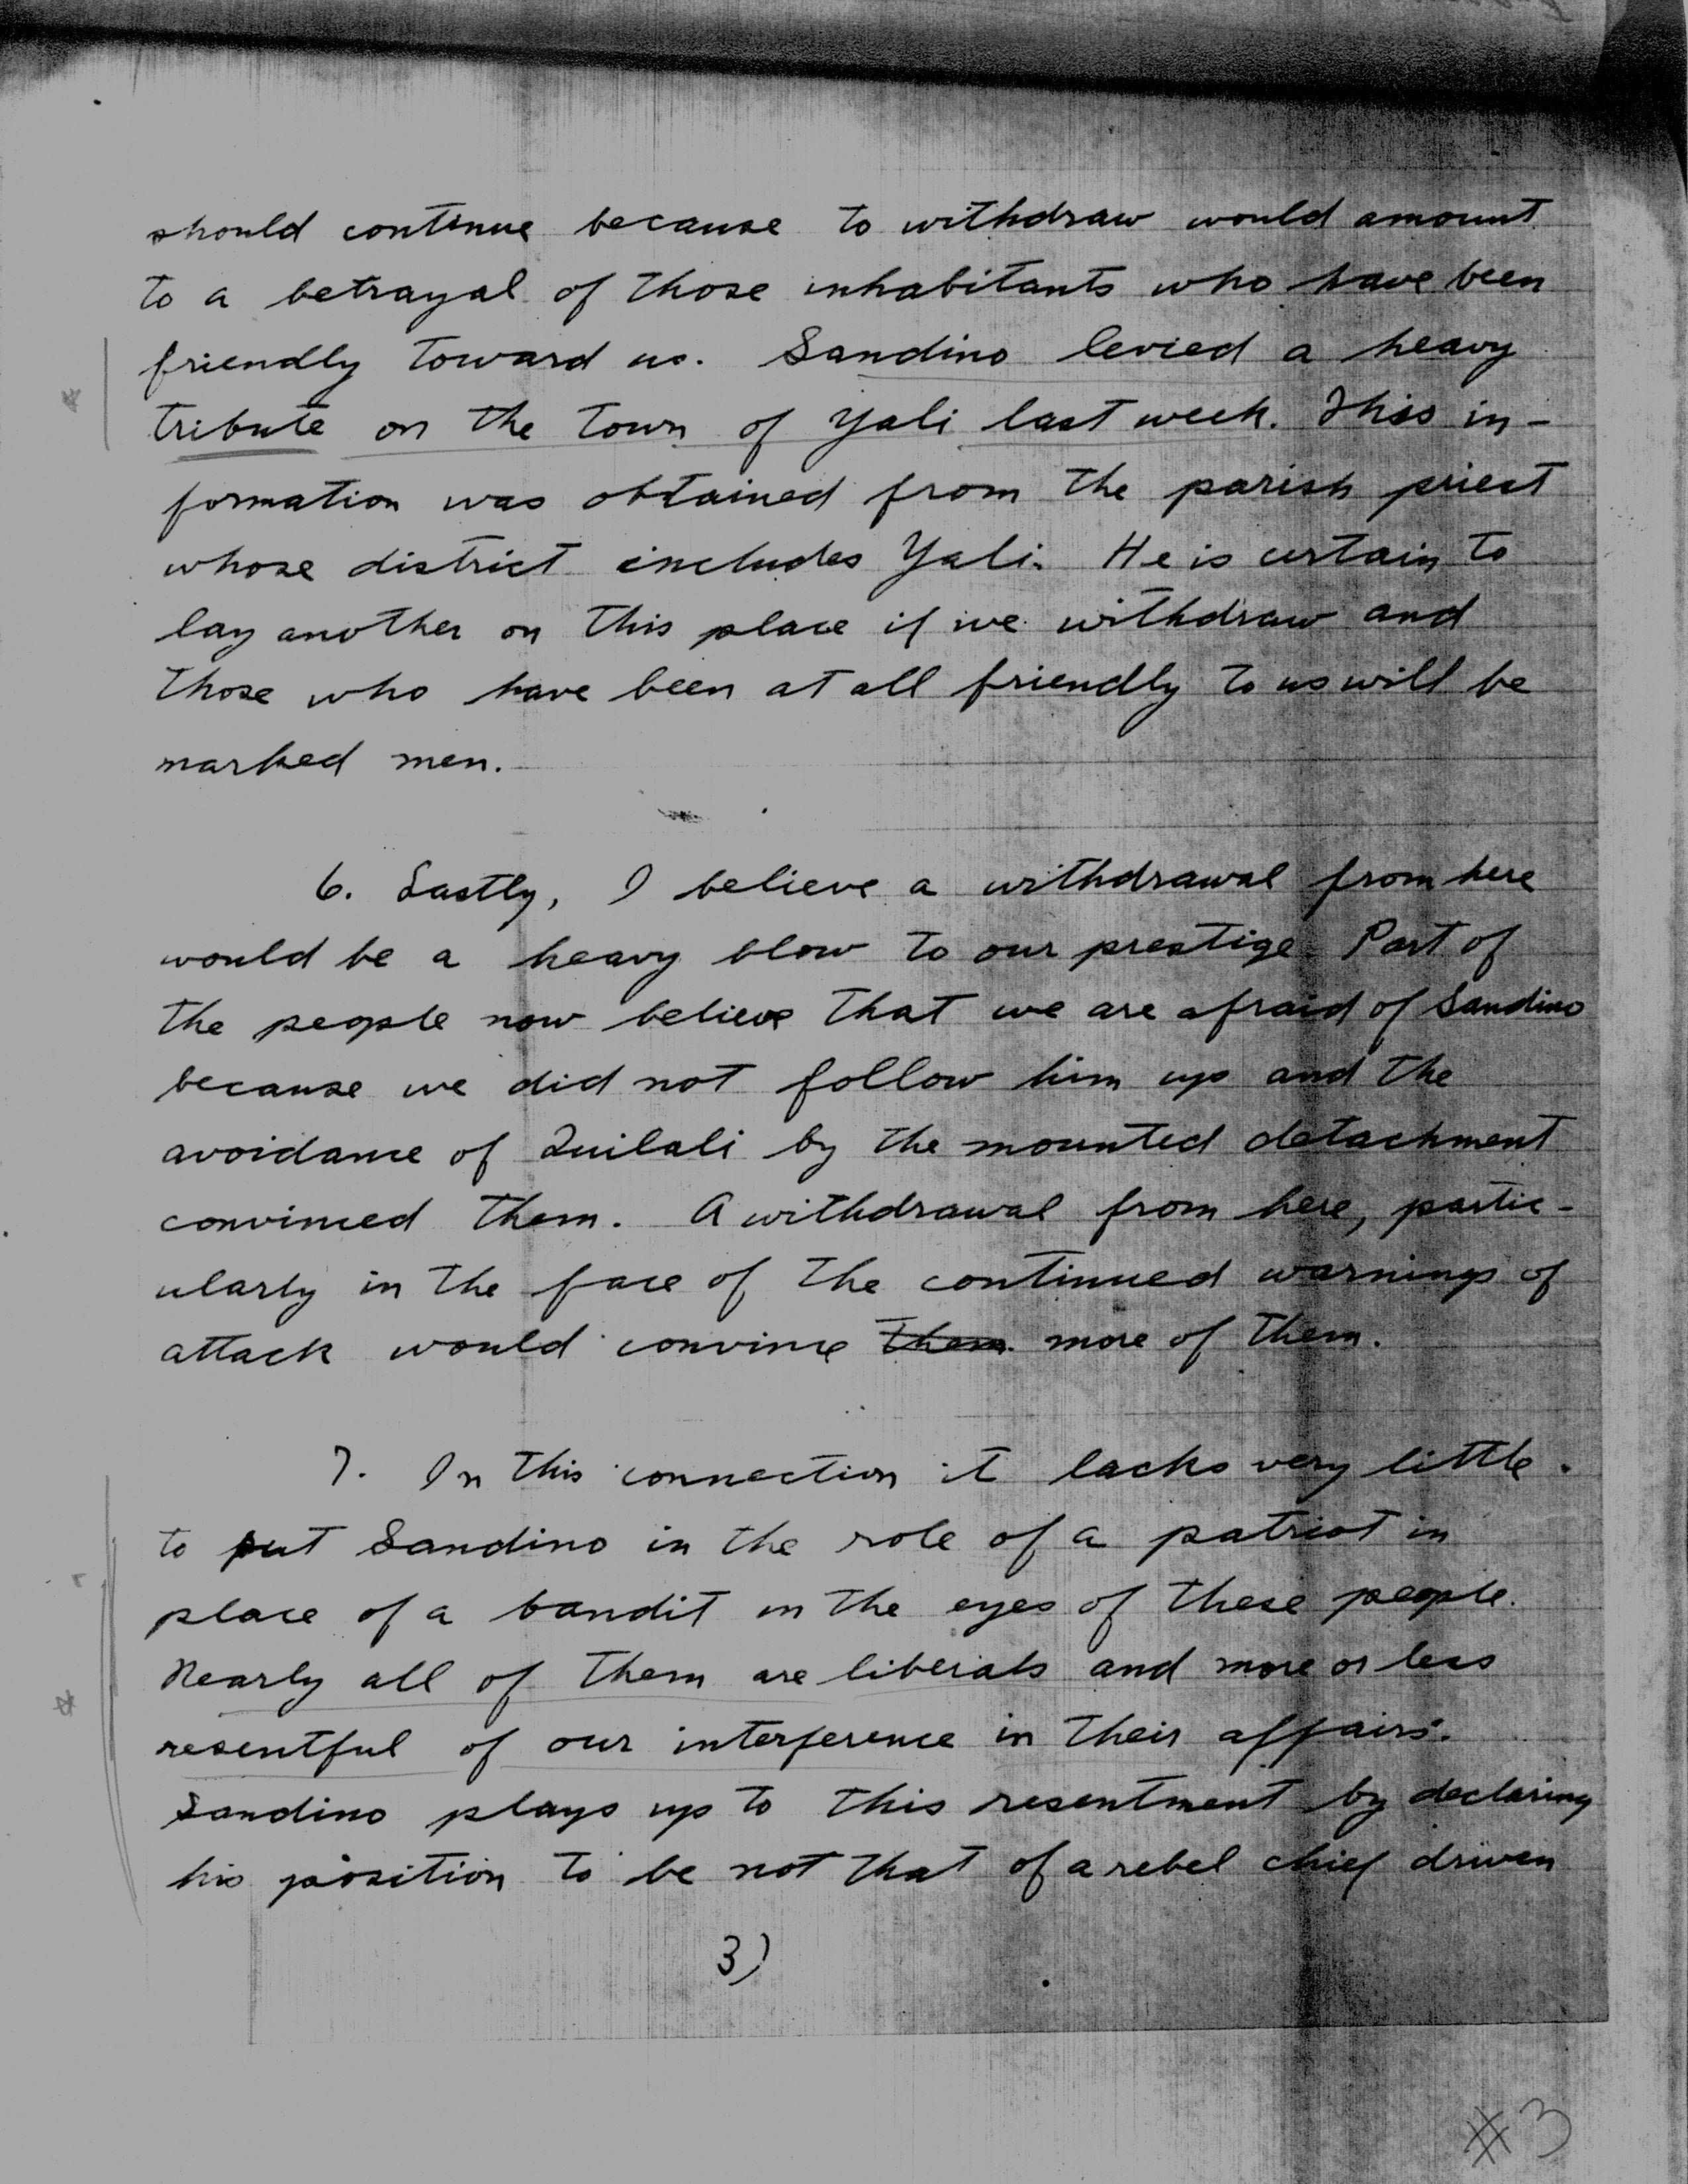 should continue because to withdraw would amount
to a betrayal of those inhabitants who have been
friendly toward us. Sandino levied a heavy
tribute on the town of Yali last week. This in-
formation was obtained from the parish priest
whose district includes Yali. He is certain to
lay another on this place if we withdraw and
those who have been at all friendly to us will be
marked men.
6. Lastly, I believe a withdrawal from here
would be a heavy blow to our prestige. Part of
the people now believe that we are afraid of Sandino
because we did not follow him up and the
avoidance of Quilali by the mounted detachment
convinced them. A withdrawal from here, partic-
ularly in the face of the continued warnings of
attack would convince them more of them.
7. In this connection it lacks very little
to put Sandino in the role of a patriot in
place of a bandit in the eyes of these people.
Nearly all of them are liberals and more or less
resentful of our interference in their affairs.
Sandino plays up to this resentment by declaring
his position to be not that of a rebel chief driven
3)
#3